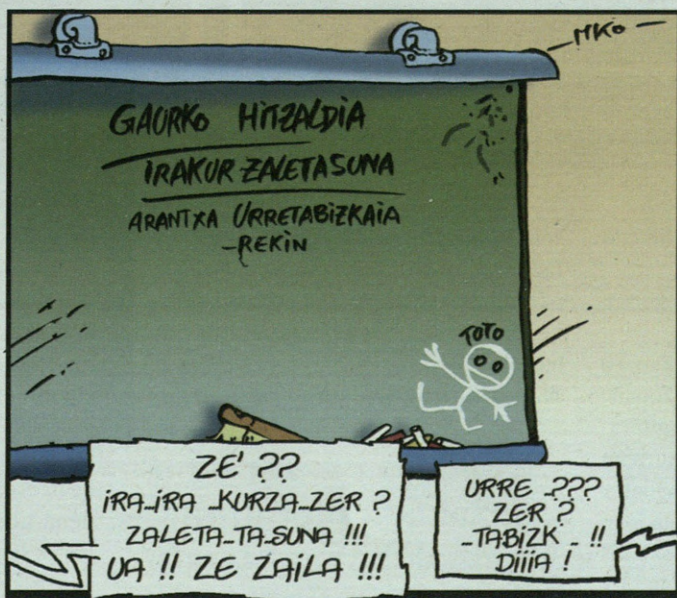 MKO
GAURKO HITZALDIA
IRAKURZALETASUNA
ARANTXA URRETABIZKAIA
-REKIN
TOTO
ZE' ??
IRA..IRA ..KURZA..ZER ?
ZALETA..TA..SUNA !!!
UA !! ZE ZAILA !!!
URRE ..???
ZER ?
..TABIZK .. !!
DIIIA !